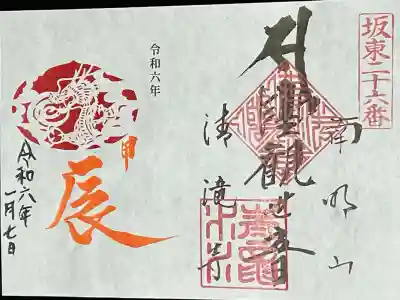 坂東二十六番
南明山
聖觀世音
清滝寺
令和六年
甲
辰
令和六年
一月七日